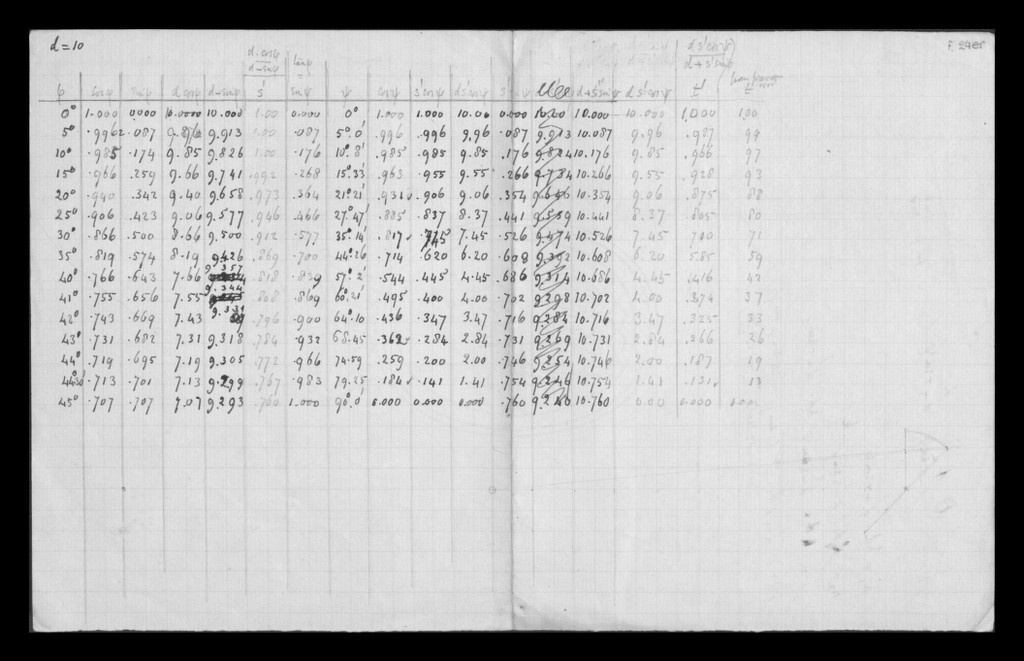 d = 10
d cos φ
d - sin φ
tan φ
=
d s' cos ψ
d + s' sin ψ
φ cos φ sin φ d cos φ d - sin φ s' sin ψ ψ cos ψ s' cos ψ d s' cos ψ d + s' sin ψ d s' cos ψ t'
0° 1.000 0.000 10.0000 10.000 1.00 0.000 0° 1.000 1.000 10.00 0.000 10.000 10.000 1.000 100
5° .9962 .087 9.913 1.00 .087 5°.0' .996 .996 9.96 .087 9.913 10.087 9.96 .987 99
10° .985 .174 9.85 9.826 1.00 .176 10°.8' .985 .985 9.85 .176 9.824 10.176 9.85 .966 97
15° .966 .259 9.66 9.741 .992 .268 15°.33' .963 .955 9.55 .266 9.734 10.266 9.55 .928 93
20° .940 .342 9.40 9.658 .973 .364 21°.21' .931 .906 9.06 .354 9.646 10.354 9.06 .875 88
25° .906 .423 9.06 9.577 .946 .466 27°.47' .885 .837 8.37 .441 9.559 10.441 8.37 .805 80
30° .866 .500 8.66 9.500 .912 .577 35°.14' .817 .745 7.45 .526 9.474 10.526 7.45 .710 71
35° .819 .574 8.19 9.426 .869 .700 44°.26 .714 .620 6.20 .608 9.392 10.608 6.20 .585 59
40° .766 .643 7.66 9.357 .818 .839 57°.2' .544 .445 4.45 .686 9.314 10.686 4.45 .416 42
41° .755 .656 7.55 9.344 .808 .869 60°.21' .495 .400 4.00 .702 9.298 10.702 4.00 .374 37
42° .743 .669 7.43 9.331 .796 .900 64°.10 .436 .347 3.47 .716 9.284 10.716 3.47 .325 33
43° .731 .682 7.31 9.318 .784 .932 68.45 .362 .284 2.84 .731 9.269 10.731 2.84 .266 26
44° .719 .695 7.19 9.305 .772 .966 74.59 .259 .200 2.00 .746 9.254 10.746 2.00 .187 19
44°30' .713 .701 7.13 9.299 .767 .983 79.25 .184 .141 1.41 .754 9.246 10.754 1.41 .131 13
45° .707 .707 7.07 9.293 .760 1.000 90°.0' 0.000 0.000 0.000 .760 9.240 10.760 0.00 0.000